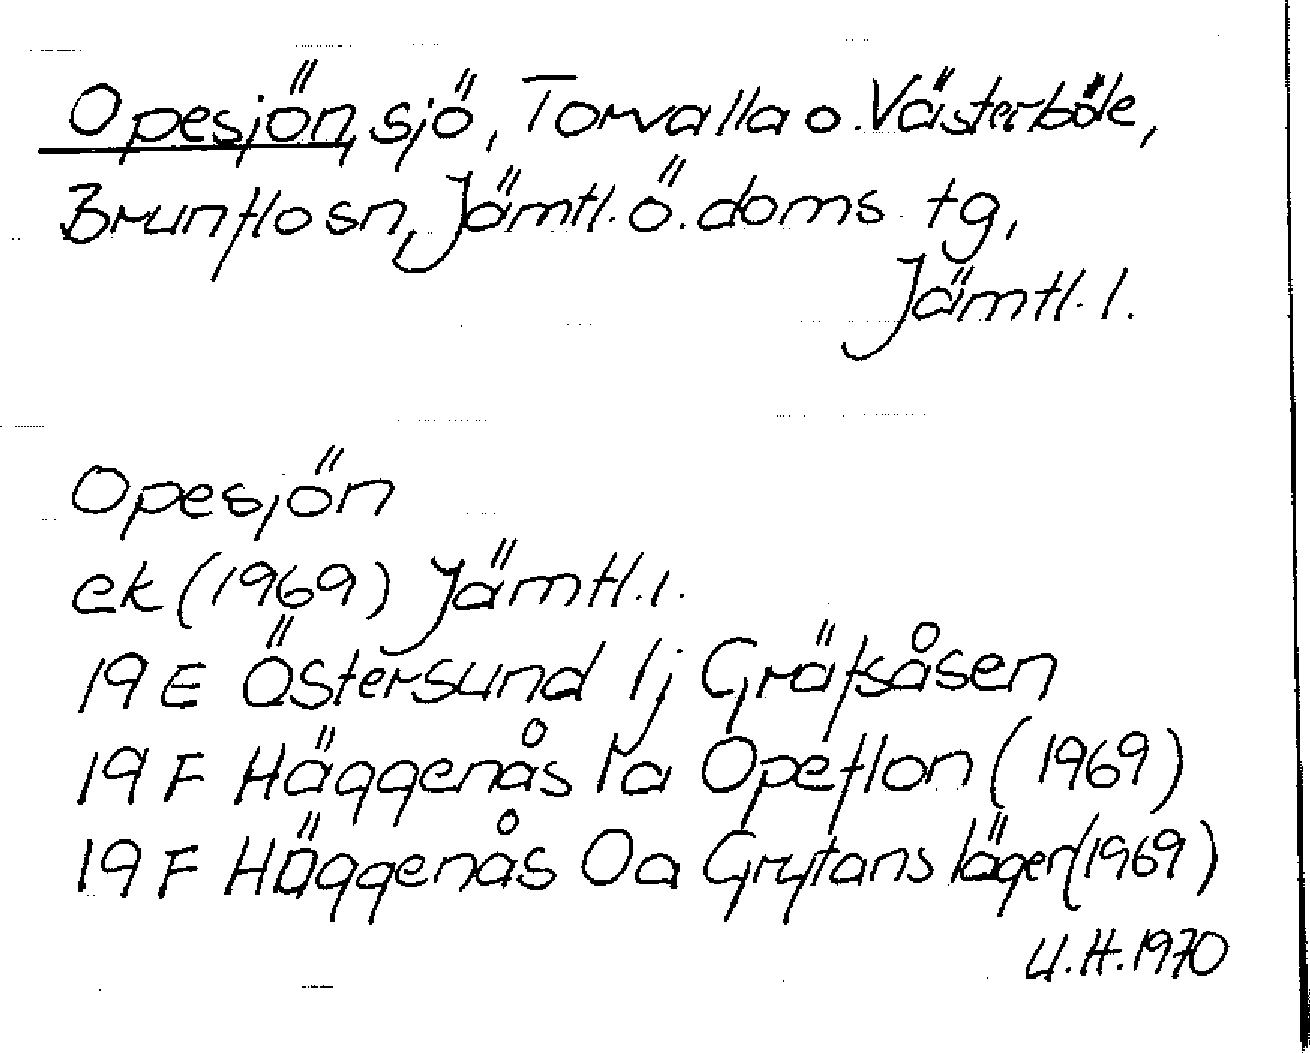 Opesjön, sjö, Torvalla o. Västerböle,
Brunflo sn, Jämtl. Ö. doms. tg,
Jämtl. l.
Opesjön
ek (1969) Jämtl. l.
19 E Östersund 1j Gräfsåsen
19 F Häggenås 1a Opeflon (1969)
19 F Häggenås 0a Grytans läger (1969)
U.H. 1970